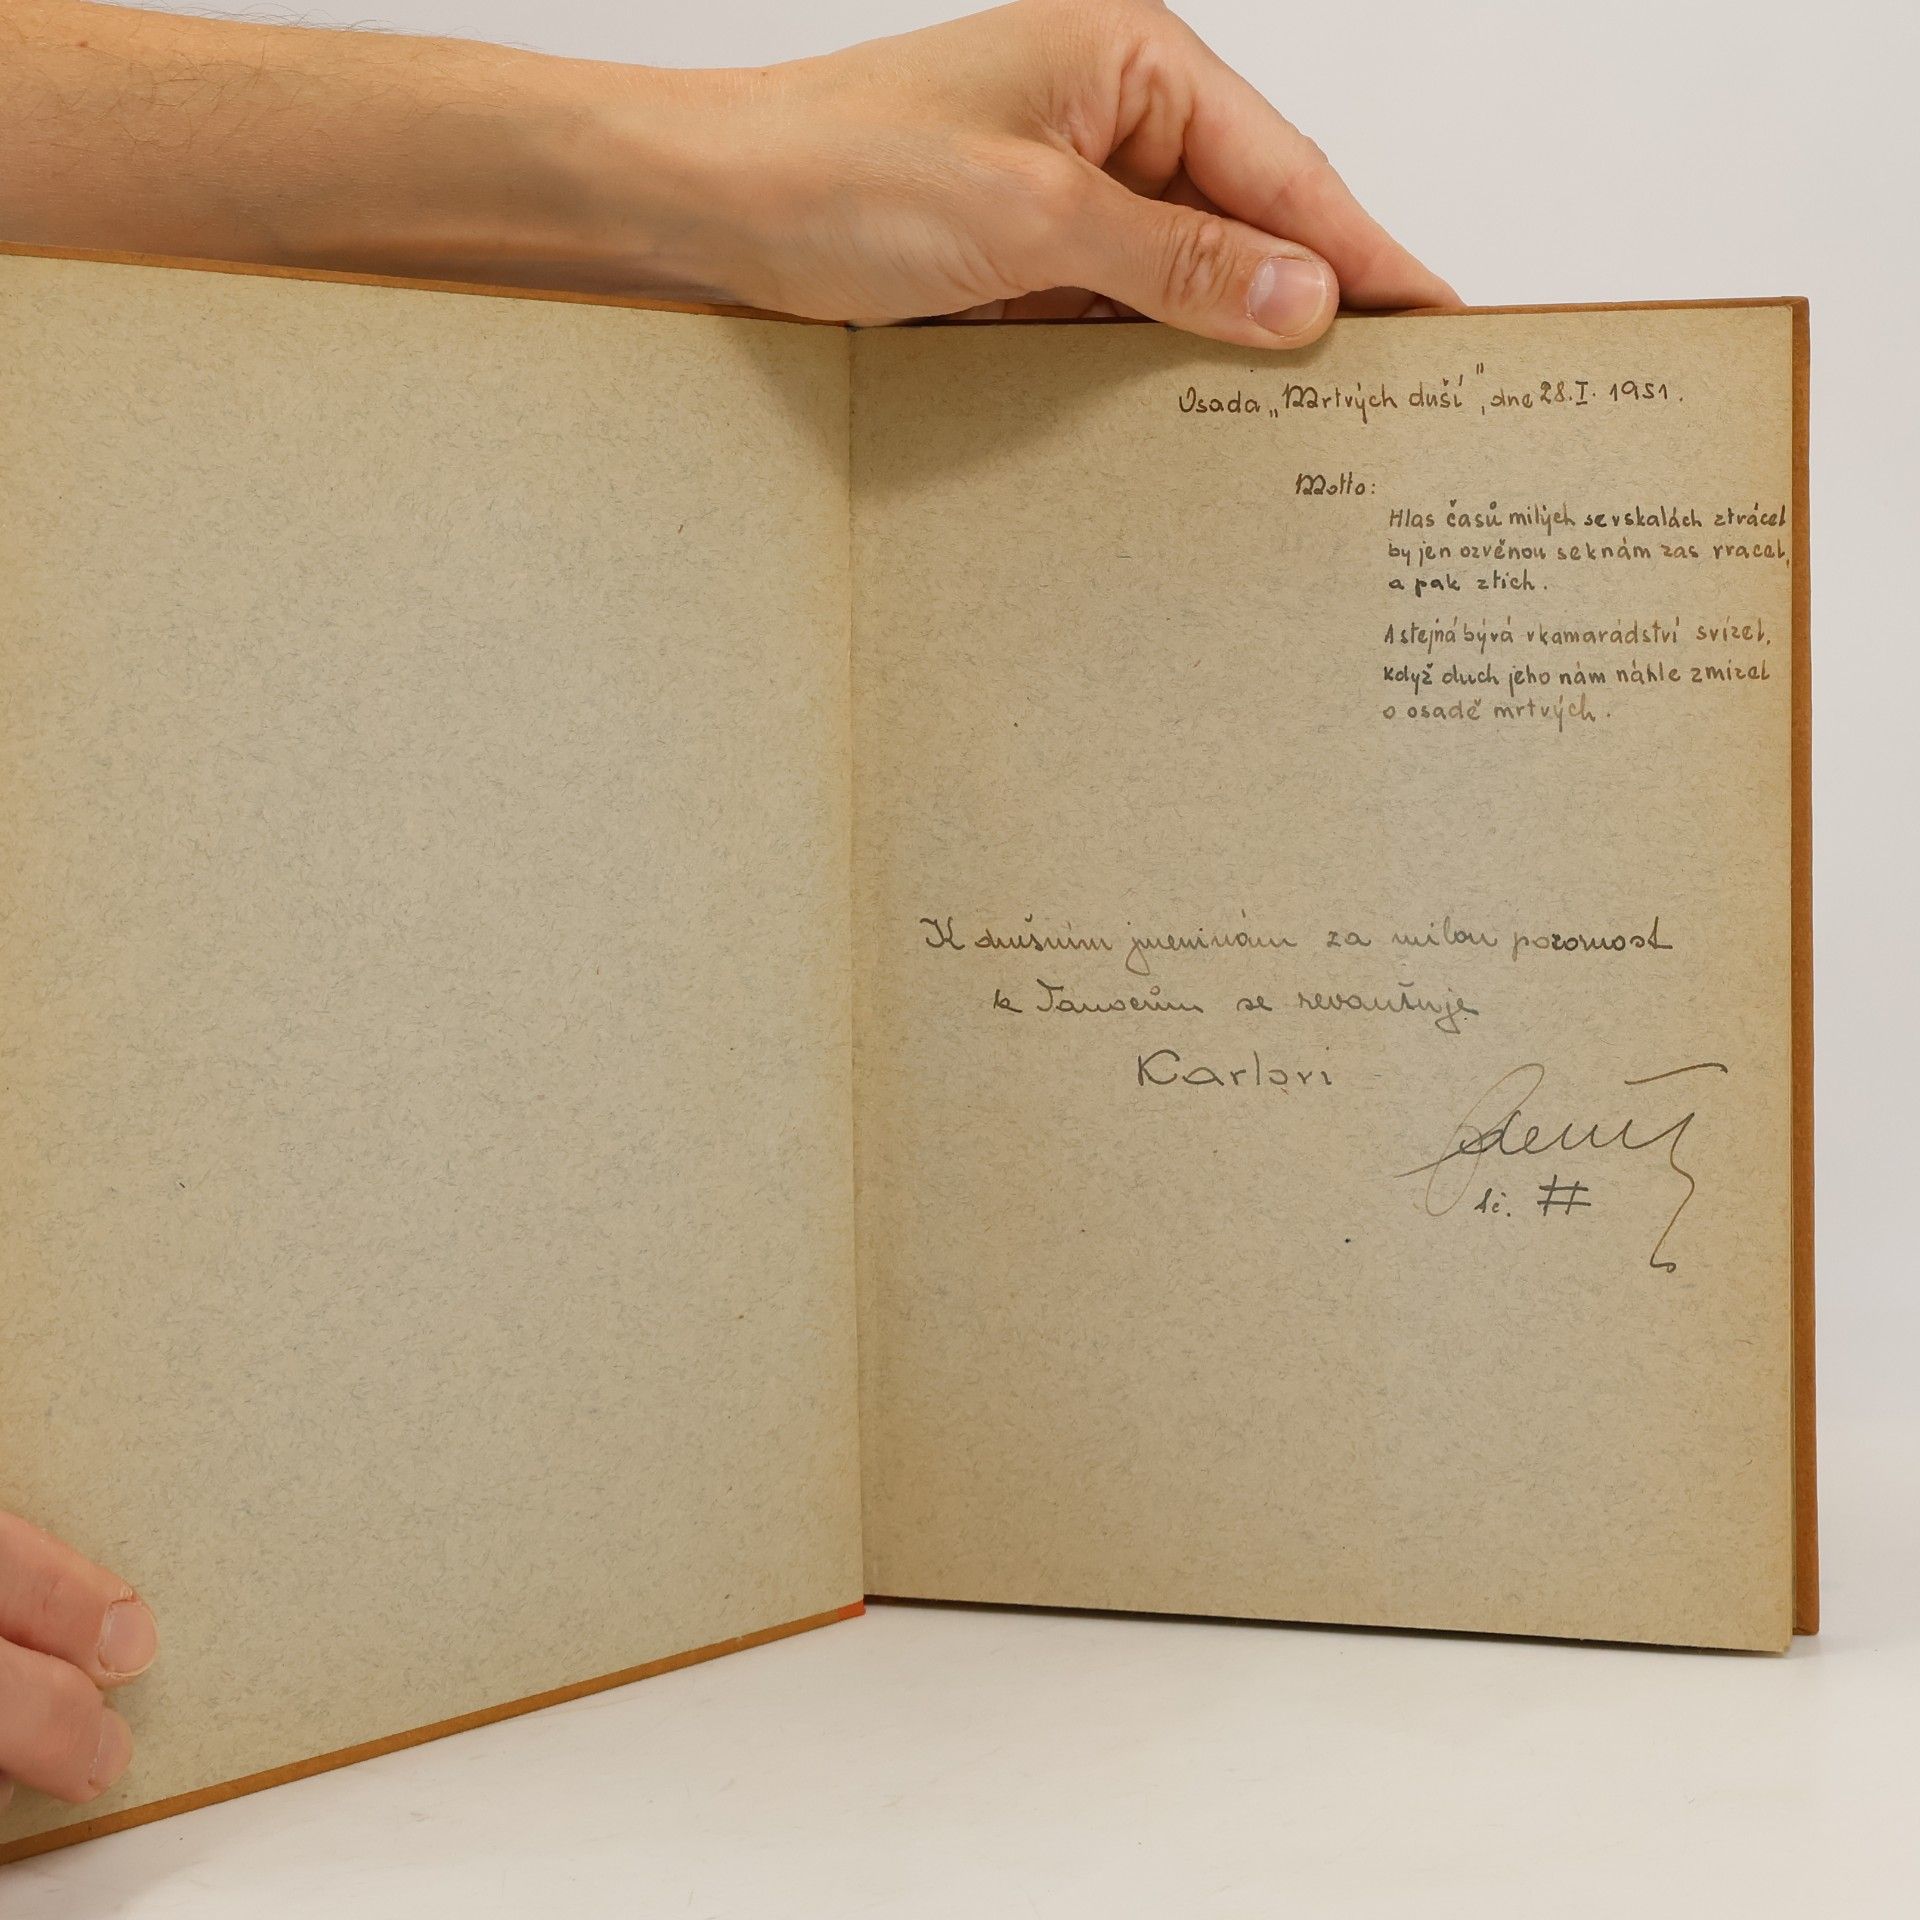 Osada „Mrtvých duší", dne 28.I. 1951.
Motto:
Hlas časů milých se v skalách ztrácel
by jen ozvěnou se k nám zas vracel,
a pak ztich.
A stejná bývá v kamarádství svízel,
když duch jeho nám náhle zmizel
o osadě mrtvých.
K dušním jmeninám za milou pozornost
k se revanšuje
Karlovi